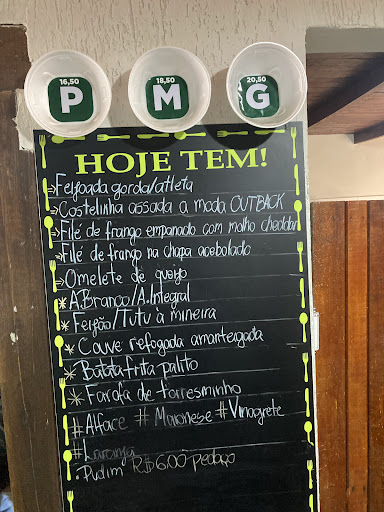 16,50
P
18,50
M
20,50
G
HOJE TEM!
→Feijoada gorda/atleta
→Costelinha assada a moda OUTBACK
→Filé de frango empanado com molho cheddar
→Filé de frango na chapa acebolado
→Omelete de queijo
*A.Branco/A.Integral
* Feijão/Tutu à mineira
* Couve refogada amanteigada
* Batata frita palito
* Farofa de torresminho
#Alface # Maionese #Vinagrete
#Laranja
•Pudim R$6,00 pedaço